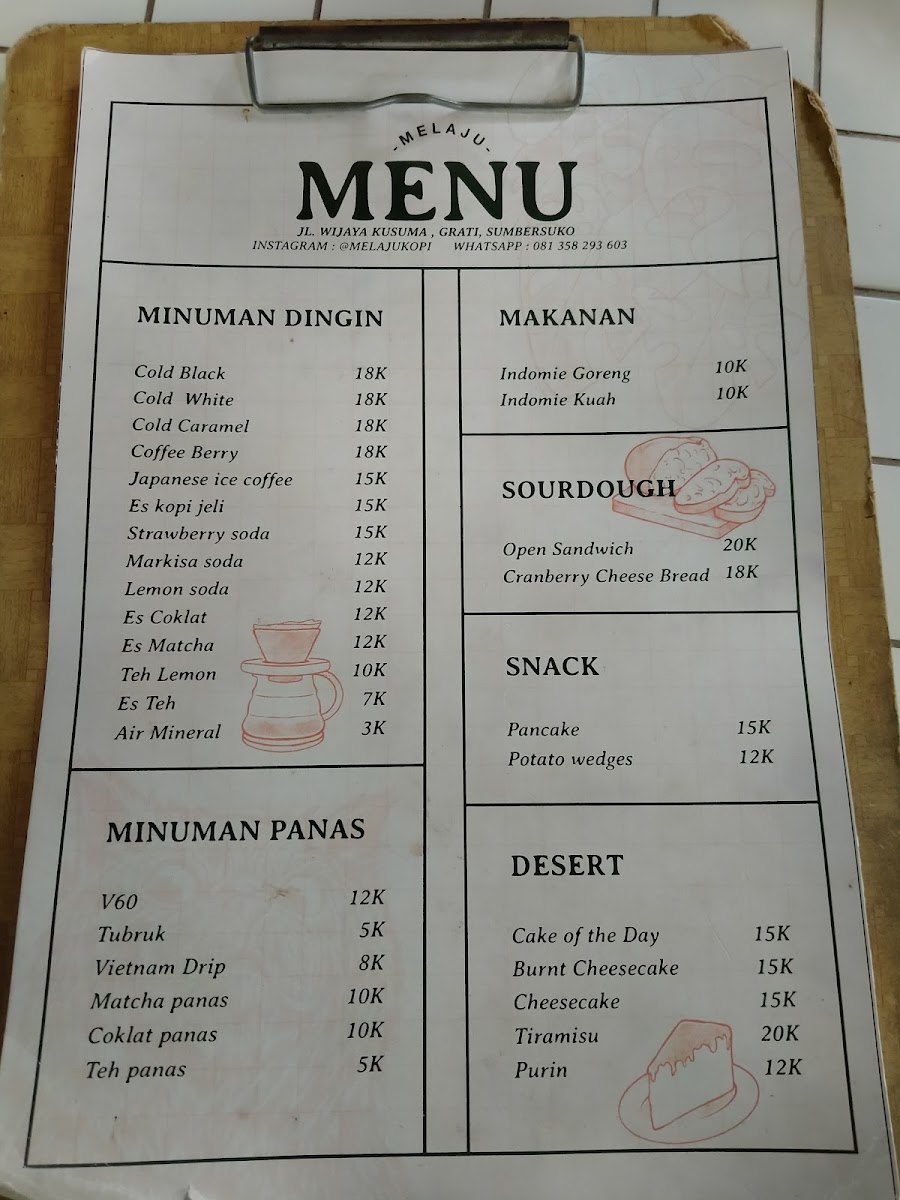 -MELAJU-
MENU
JL. WIJAYA KUSUMA , GRATI, SUMBERSUKO
INSTAGRAM : @MELAJUKOPI WHATSAPP : 081 358 293 603
MINUMAN DINGIN
Cold Black 18K
Cold White 18K
Cold Caramel 18K
Coffee Berry 18K
Japanese ice coffee 15K
Es kopi jeli 15K
Strawberry soda 15K
Markisa soda 12K
Lemon soda 12K
Es Coklat 12K
Es Matcha 12K
Teh Lemon 10K
Es Teh 7K
Air Mineral 3K
MINUMAN PANAS
V60 12K
Tubruk 5K
Vietnam Drip 8K
Matcha panas 10K
Coklat panas 10K
Teh panas 5K
MAKANAN
Indomie Goreng 10K
Indomie Kuah 10K
SOURDOUGH
Open Sandwich 20K
Cranberry Cheese Bread 18K
SNACK
Pancake 15K
Potato wedges 12K
DESERT
Cake of the Day 15K
Burnt Cheesecake 15K
Cheesecake 15K
Tiramisu 20K
Purin 12K